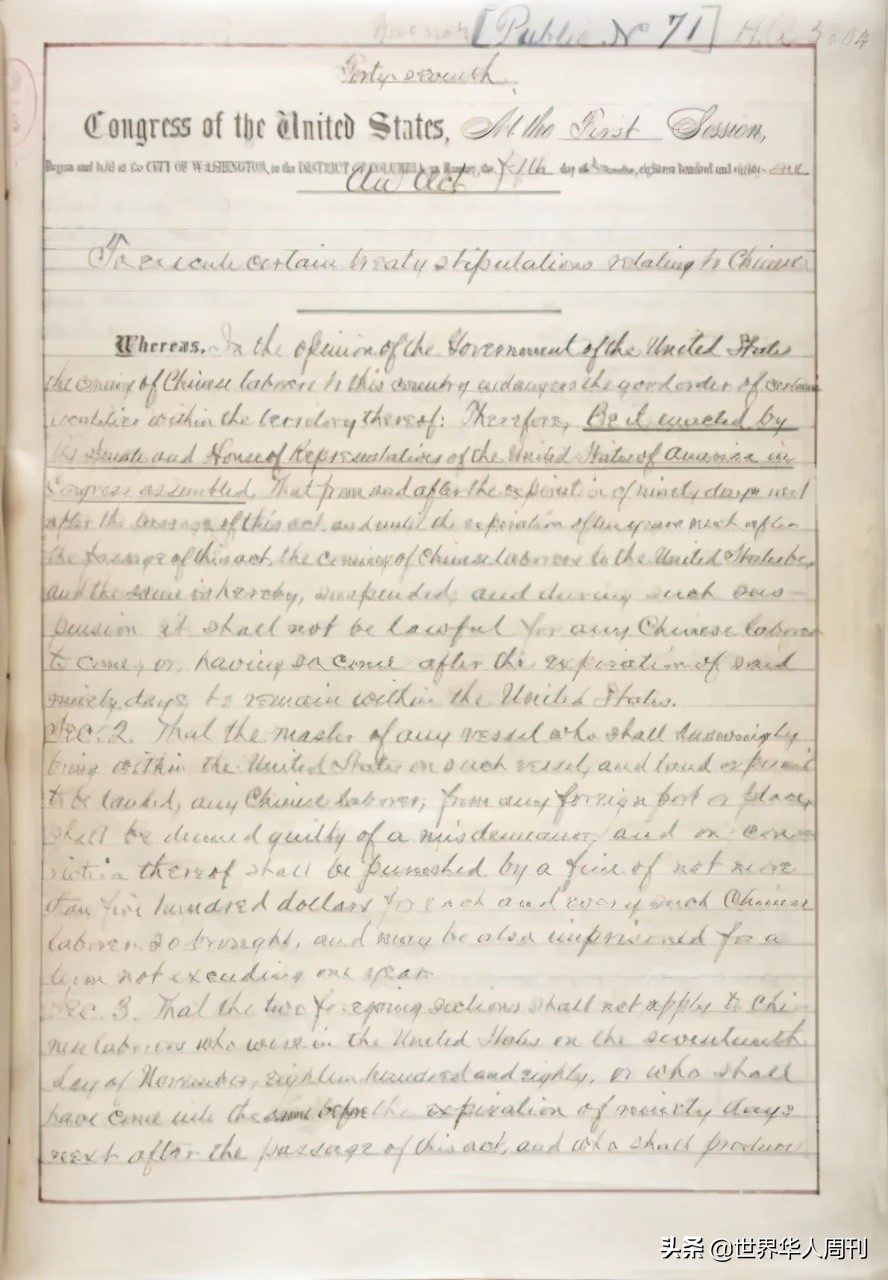 [Public No 71] H.R. 5804
Forty-seventh
Congress of the United States, At the First Session,
Begun and held at the CITY OF WASHINGTON, in the DISTRICT OF COLUMBIA, on Monday, the fifth day of December, eighteen hundred and eighty-one
An Act
To execute certain treaty stipulations relating to Chinese
Whereas, In the opinion of the Government of the United States
the coming of Chinese laborers to this country endangers the good order of certain
localities within the territory thereof: Therefore, Be it enacted by
the Senate and House of Representatives of the United States of America in
Congress assembled, That from and after the expiration of ninety days next
after the passage of this act, and until the expiration of ten years next after
the passage of this act, the coming of Chinese laborers to the United States be,
and the same is hereby, suspended; and during such sus-
pension it shall not be lawful for any Chinese laborer
to come, or, having so come after the expiration of said
ninety days, to remain within the United States.
Sec. 2. That the master of any vessel who shall knowingly
bring within the United States on such vessel, and land or permit
to be landed, any Chinese laborer, from any foreign port or place,
shall be deemed guilty of a misdemeanor, and on con-
viction thereof shall be punished by a fine of not more
than five hundred dollars for each and every such Chinese
laborer so brought, and may be also imprisoned for a
term not exceeding one year.
Sec. 3. That the two foregoing sections shall not apply to Chi-
nese laborers who were in the United States on the seventeenth
day of November, eighteen hundred and eighty, or who shall
have come into the same before the expiration of ninety days
next after the passage of this act, and who shall produce
头条 @世界华人周刊